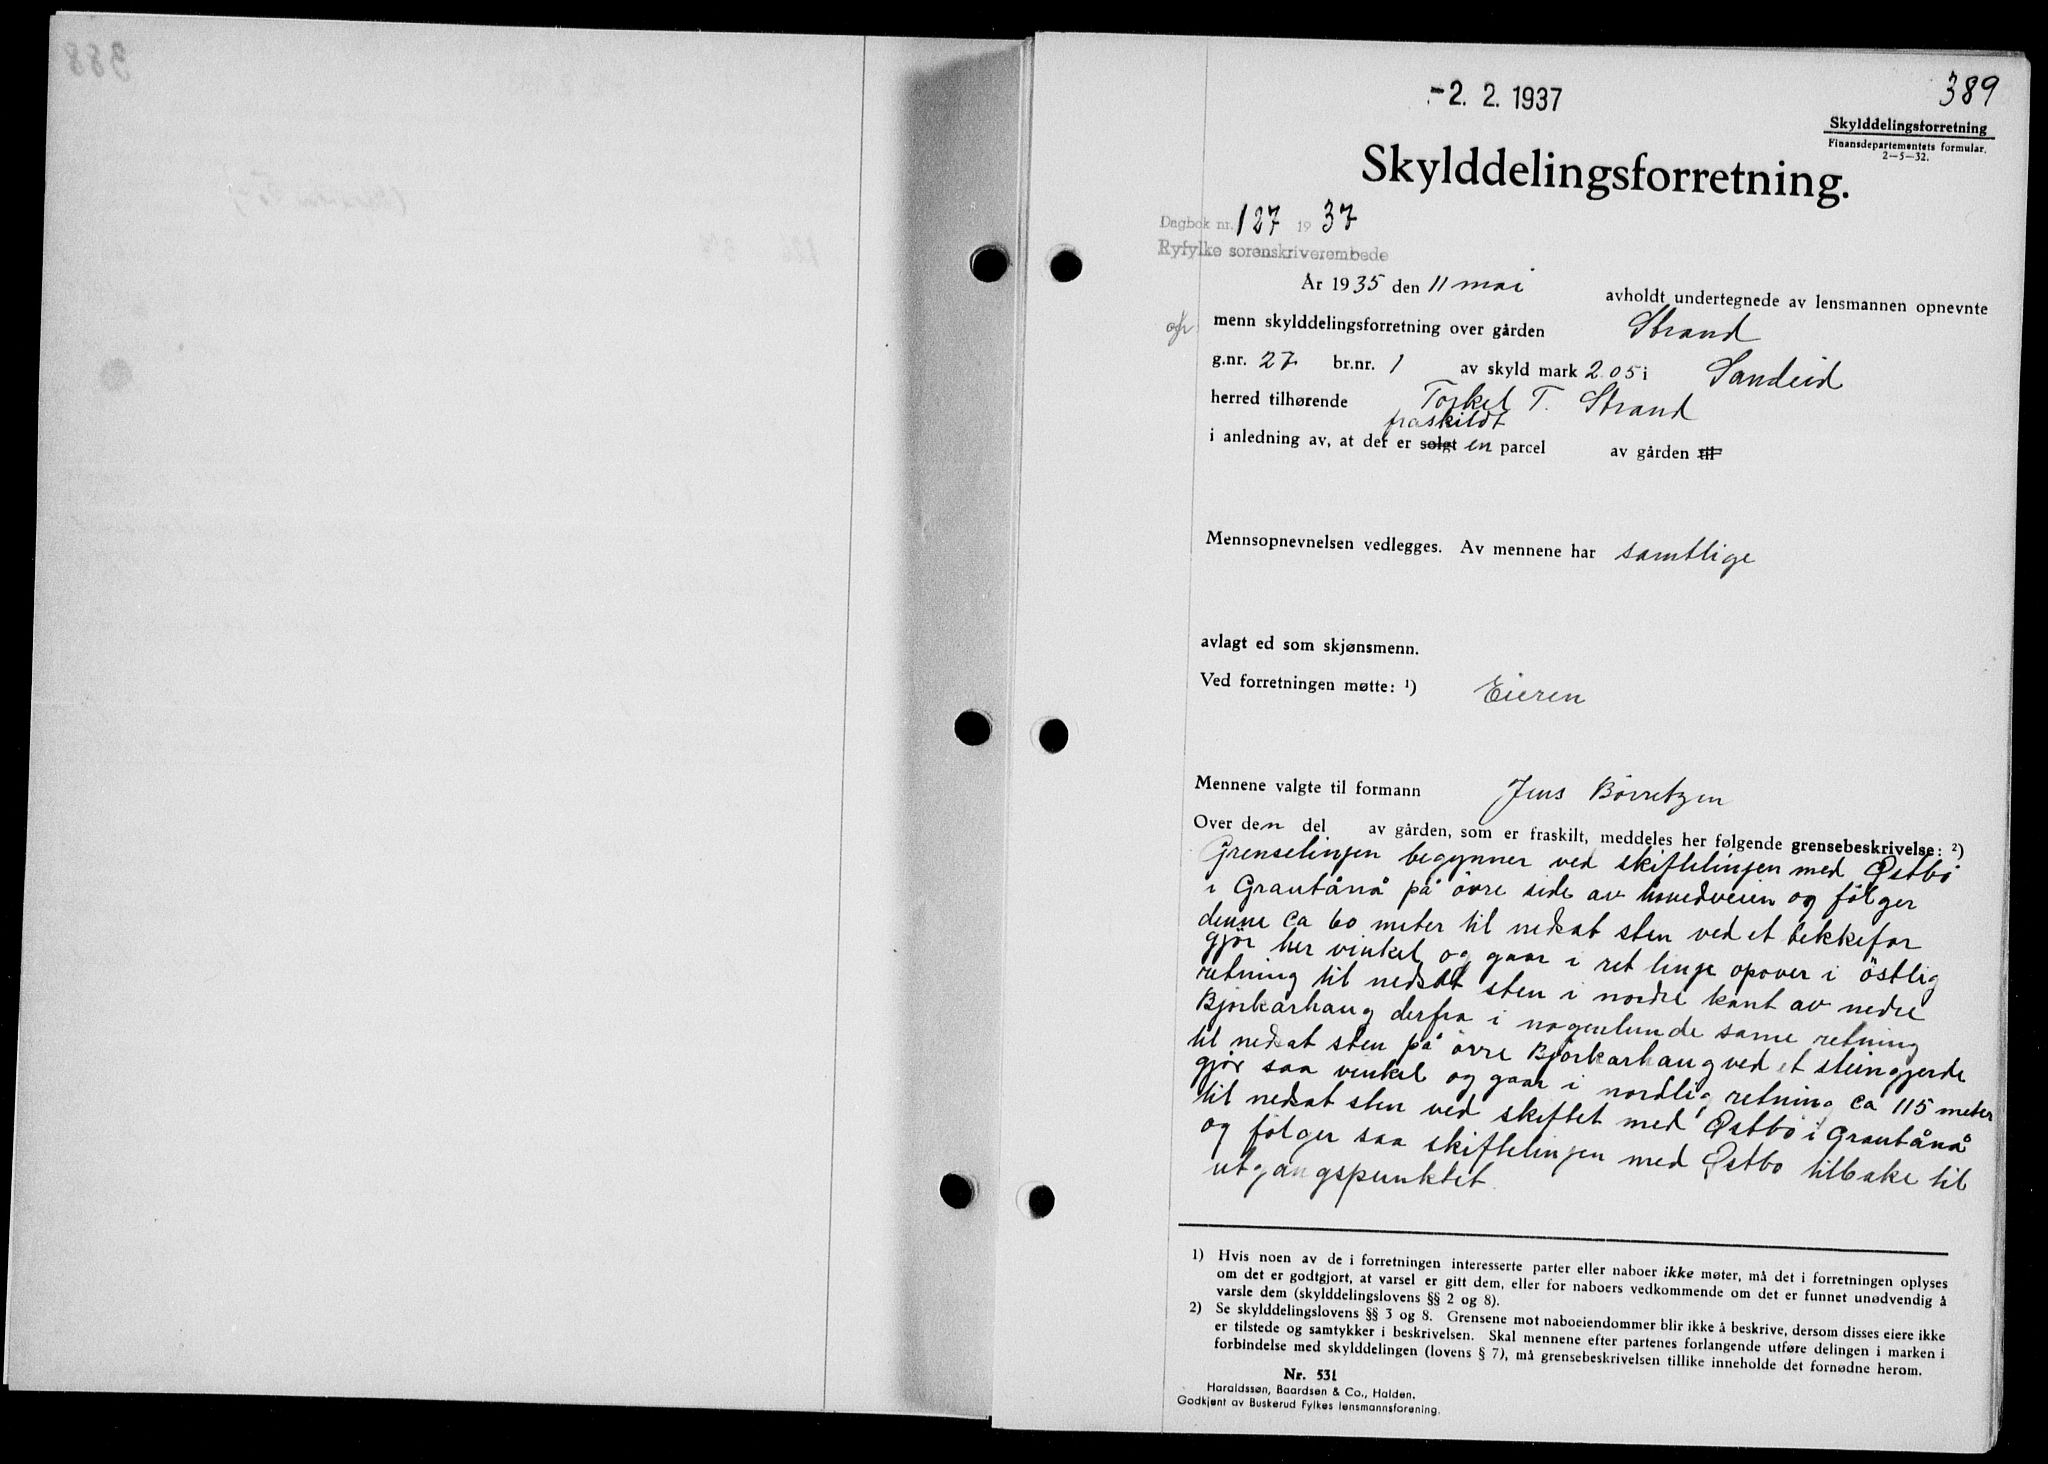 -2. 2. 1937
389
Skylddelingsforretning
Finansdepartementets formular.
2—5—32.
Skylddelingsforretning.
Dagbok nr. 127 1937
Ryfylke sorenskriverembede
År 1935 den 11 mai avholdt undertegnede av lensmannen opnevnte
menn skylddelingsforretning over gården Strand
g.nr. 27 br.nr. 1 av skyld mark 2.05 i Sandeid
herred tilhørende Torkel T. Strand
fraskildt
i anledning av, at det er solgt en parcel av gården til
Mennsopnevnelsen vedlegges. Av mennene har samtlige
avlagt ed som skjønsmenn.
Ved forretningen møtte: ¹) Eieren
Mennene valgte til formann Jens Børretzen
Over den del av gården, som er fraskilt, meddeles her følgende grensebeskrivelse: ²)
Grenselinjen begynner ved skiftelinjen med Østbö
i Grautånå på övre side av hovedveien og fölger
denne ca 60 meter til nedsat sten ved et bekkefar
gjör her vinkel og gaar i ret linje opover i östlig
retning til nedsat sten i nordre kant av nedre
Bjorkarhaug derfra i nogenlunde same retning
til nedsat sten på övre Bjorkarhaug ved et steingjerde
gjör saa vinkel og gaar i nordlig retning ca 115 meter
til nedsat sten ved skiftet med Østbö i Grautånå
og fölger saa skiftelinjen med Østbo tilbake til
utgangspunktet.
1) Hvis noen av de i forretningen interesserte parter eller naboer ikke møter, må det i forretningen oplyses
om det er godtgjort, at varsel er gitt dem, eller for naboers vedkommende om det er funnet unødvendig å
varsle dem (skylddelingslovens §§ 2 og 8).
2) Se skylddelingslovens §§ 3 og 8. Grensene mot naboeiendommer blir ikke å beskrive, dersom disses eiere ikke
er tilstede og samtykker i beskrivelsen. Skal mennene efter partenes forlangende utføre delingen i marken i
forbindelse med skylddelingen (lovens § 7), må grensebeskrivelsen tillike inneholde det fornødne herom.
Nr. 531
Haraldssøn, Baardsen & Co., Halden.
Godkjent av Buskerud Fylkes lensmannsforening.